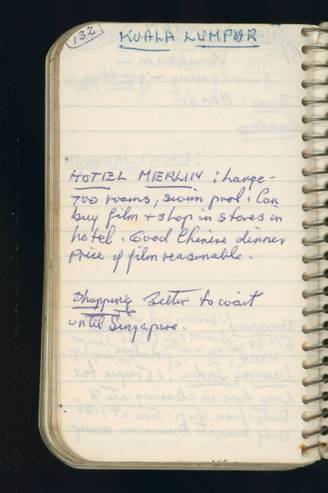 132
KUALA LUMPUR
HOTEL MERLIN : Large -
700 rooms, swim pool. Can
buy film + shop in stores in
hotel. Good Chinese dinner
Price of film reasonable.
Shopping Better to wait
until Singapore.